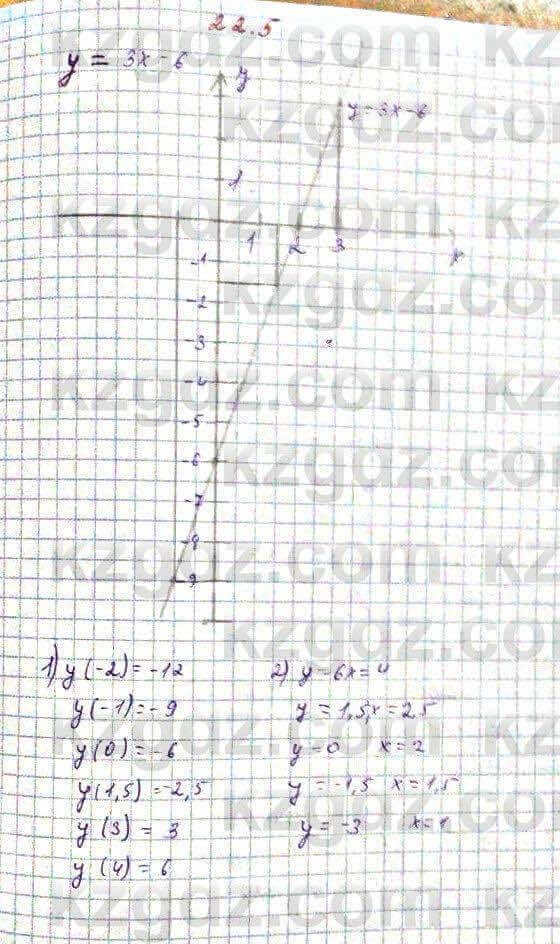 22.5
y = 3x - 6
y
y = 3x - 6
1
1 2 3
x
-1
-2
-3
-4
-5
-6
-7
-8
-9
1) y(-2) = -12
y(-1) = -9
y(0) = -6
y(1,5) = -2,5
y(3) = 3
y(4) = 6
2) y = 6 x = 4
y = 1,5, x = 2,5
y = 0 x = 2
y = -1,5 x = 1,5
y = -3 x = 1
kzgdz.com